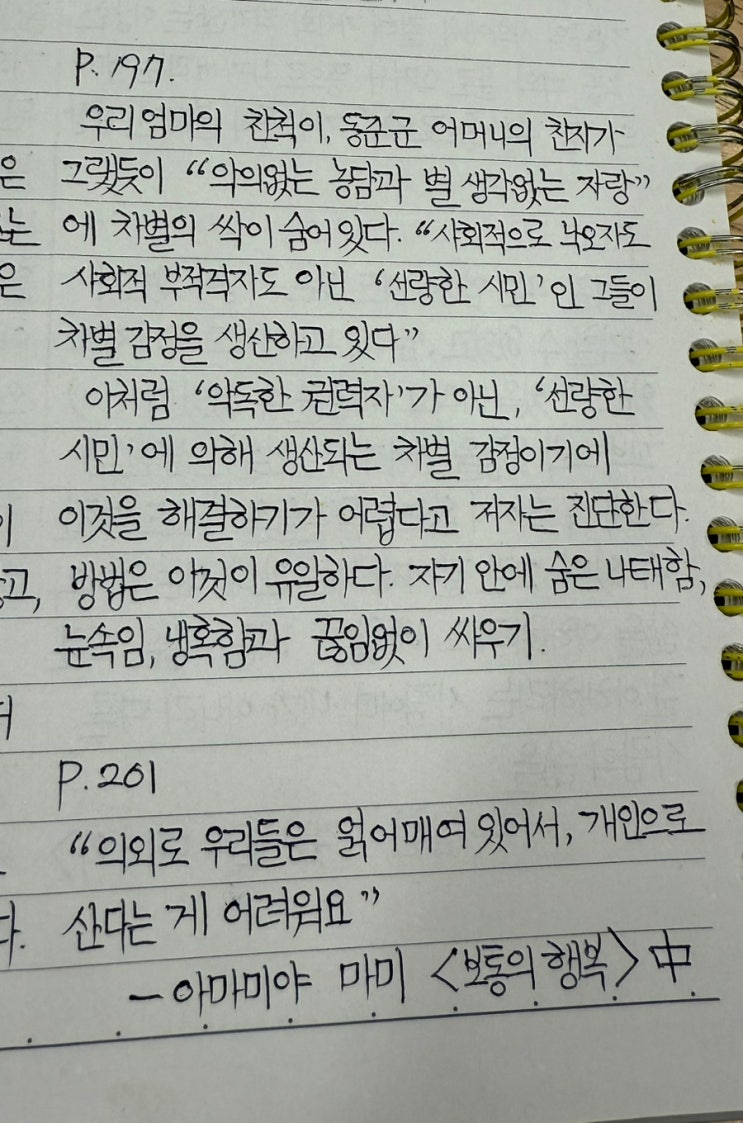 P. 197.
우리 엄마의 친척이, 동준군 어머니의 친지가
은 그랬듯이 “악의없는 농담과 별 생각없는 자랑”
는 에 차별의 싹이 숨어 있다. “사회적으로 낙오자도
은 사회적 부적격자도 아닌 ‘선량한 시민’인 그들이
차별 감정을 생산하고 있다”
이처럼 ‘악독한 권력자’가 아닌, ‘선량한
시민’에 의해 생산되는 차별 감정이기에
이 이것을 해결하기가 어렵다고 저자는 진단한다.
고, 방법은 이것이 유일하다. 자기 안에 숨은 나태함,
눈속임, 냉혹함과 끊임없이 싸우기.
P. 201
“의외로 우리들은 얽어매여 있어서, 개인으로
다. 산다는 게 어려워요”
- 아마미야 마미 <보통의 행복> 中